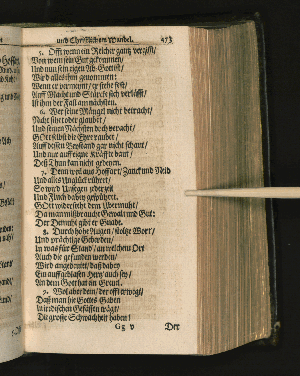 und Christlichem Wandel. 253
5. Offt wenn ein Reicher gantz vergisst/
Von wem sein Gut gekommen/
Und nun sein eigen Ab-Gott ist/
Wird alles ihm genommen:
Wenn er vermeynt/ er stehe fest/
Auff Macht und Stärcke sich verlässt/
Ist ihm der Fall am nächsten.
6. Wer seine Mängel nicht betracht/
Nicht sihet oder glaubet/
Und seinen Nächsten doch veracht/
GOtt selbst die Ehre raubet/
Auff dessen Beystand gar nicht schaut/
Und nur auff eigne Kräffte baut/
Deß Thun kan nicht gedeyen.
7. Denn weil aus Hoffart/ Zanck und Neid
Und alles Unglück rühret/
So wird Unsegen jederzeit
Und Fluch dabey gespühret.
GOtt widersteht dem Übermuht/
Da man mißbraucht Gewalt und Gut:
Der Demuht gibt er Gnade.
8. Durch hohe Augen/ stoltze Wort/
Und prächtige Geberden/
In was für Stand/ an welchem Ort
Auch die gefunden werden/
Wird angedeutet/ daß dabey
Ein auffgeblasen Hertz auch sey/
An dem Gott hat ein Greuel.
9. Wol aber dem/ der offt erwegt/
Daß man hie Gottes Gaben
In irdischen Gefässen trägt/
Die grosse Schwachheit haben!
Gg v Der